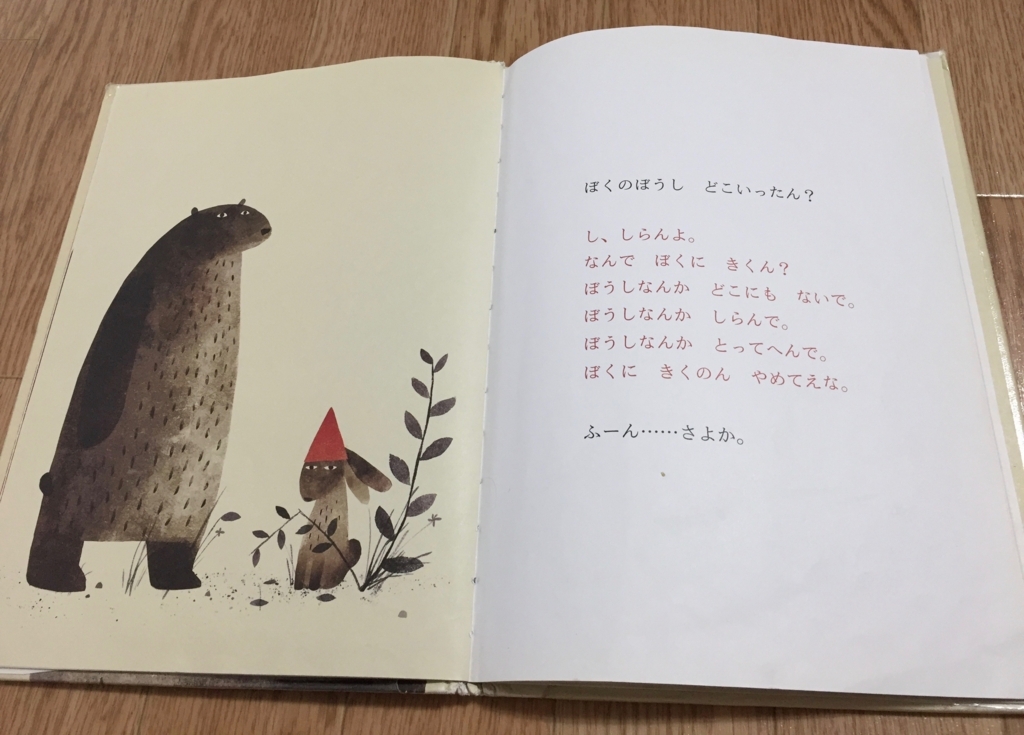 ぼくのぼうし　どこいったん？
し、しらんよ。
なんで　ぼくに　きくん？
ぼうしなんか　どこにも　ないで。
ぼうしなんか　しらんで。
ぼうしなんか　とってへんで。
ぼくに　きくのん　やめてえな。
ふーん……さよか。